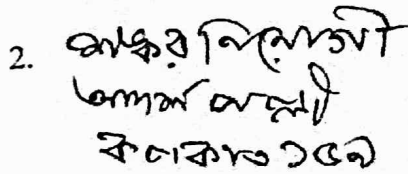 2. ভাস্কর নিয়োগী
আদর্শ পল্লী
কলকাতা ১৫৯